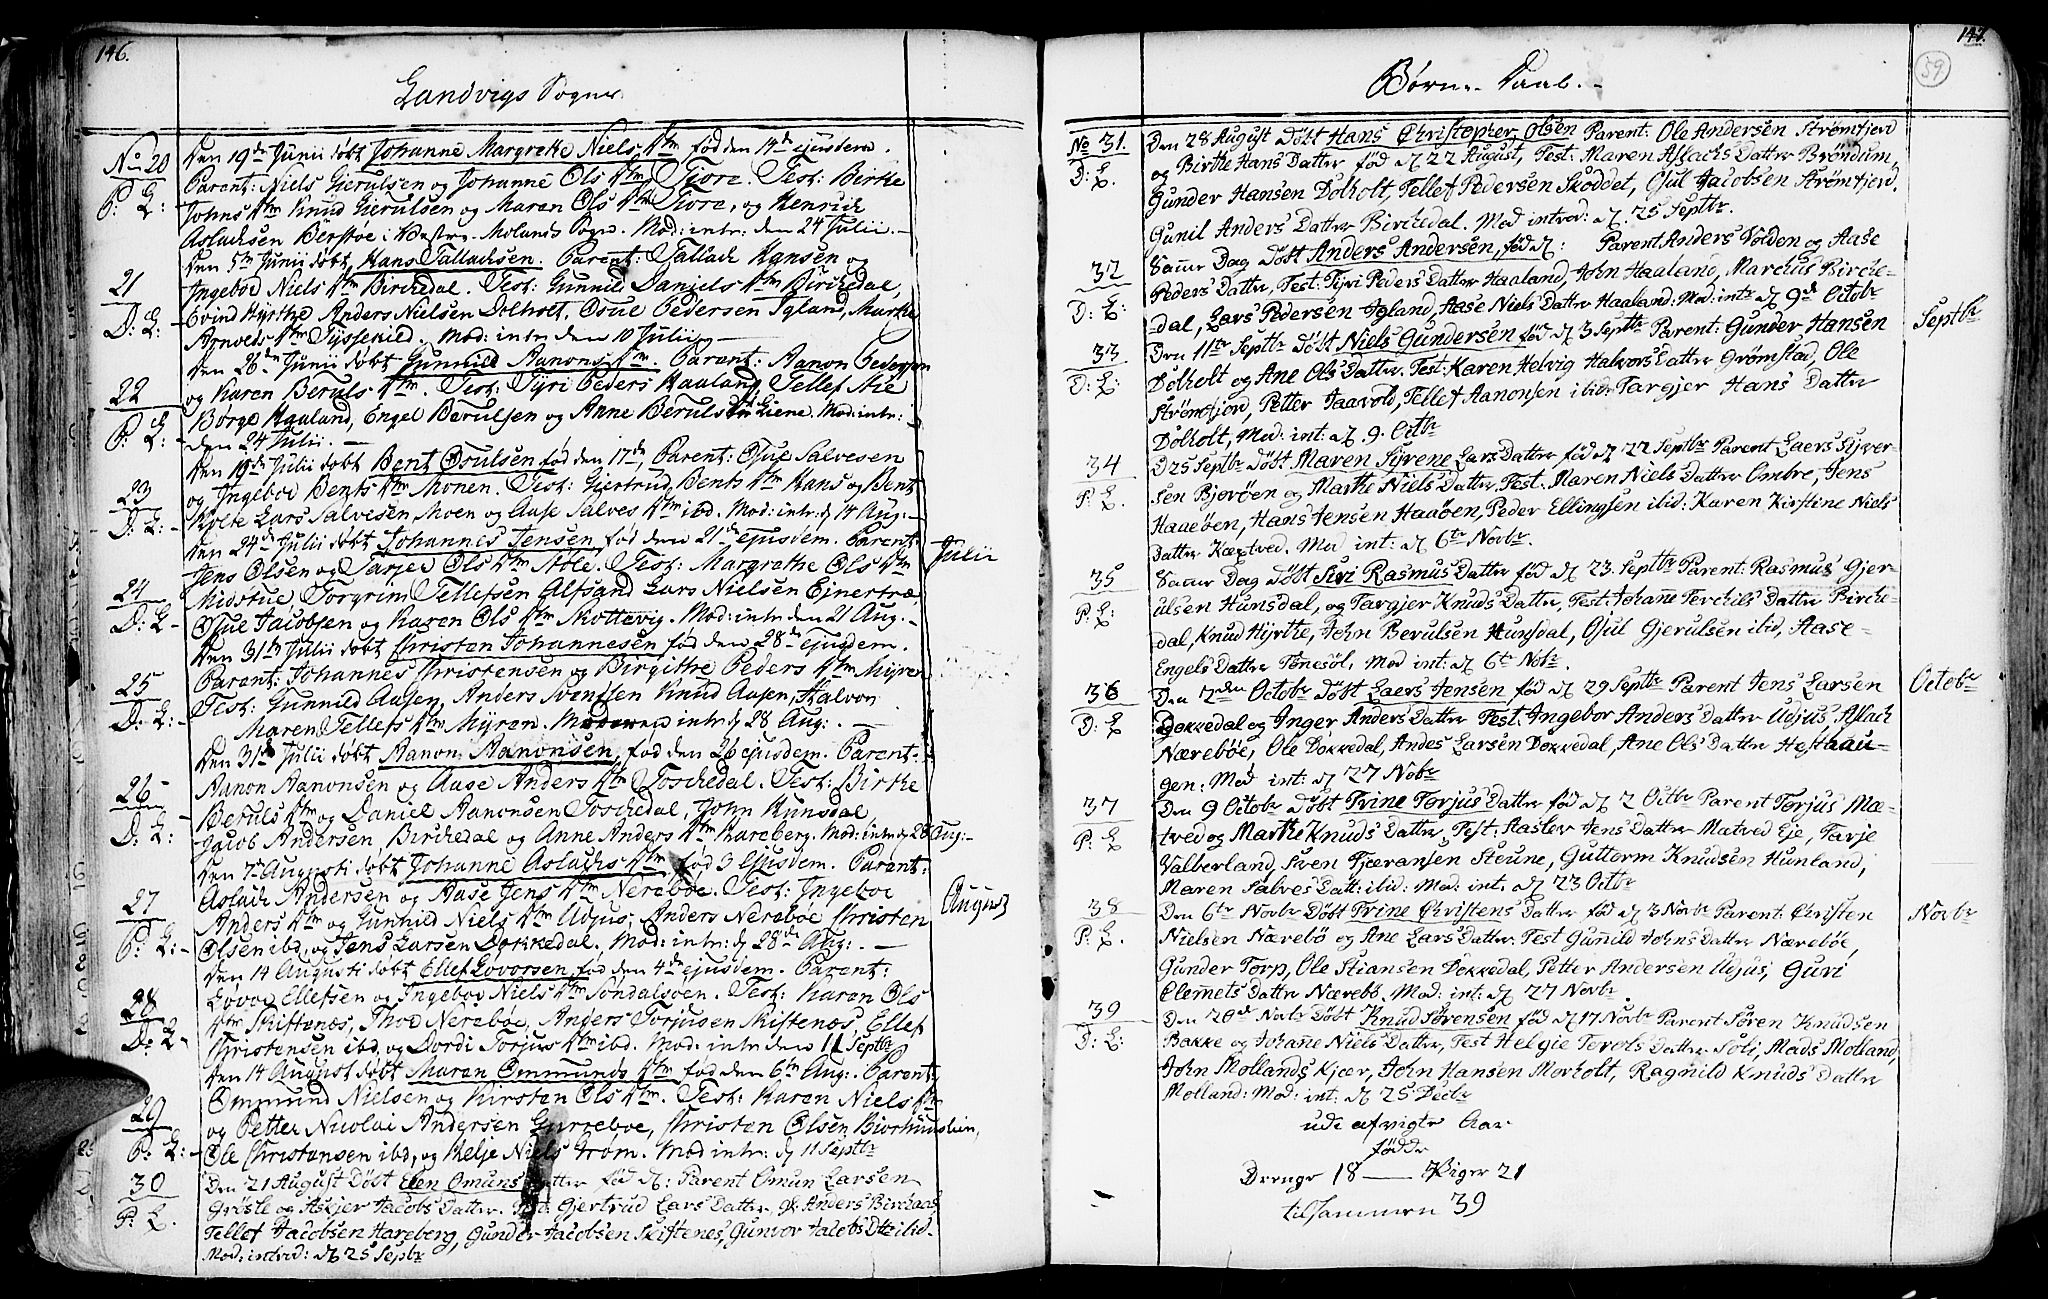 146.
Landvigs Sogns
No 20
Den 19de Junii döbt Johanne Margrethe Niels Dtr. fød den 14de ejusdem.
Parent: Niels Gierulsen og Johanne Ols Dtr Fiore. Test: Birthe
P: L: Johns Dtr Knud Gierulsen og Maren Ols Dtr Fiore, og Henrich
Aslachsen Berstøe i Østre Molands Sogn. Mod: intr: den 24 Julii.
Den 5te Junii döbt Hans Tallachsen. Parent: Tallach Hansen og
21 Ingebor Niels Dtr Birchedal. Test: Gunnild Daniels Dtr Birchedal,
D: L: Evind Hyrthe Anders Nielsen Dolholt, Osue Pedersen Igland, Marthe
Arnvids Dtr Tysseeild. Mod: intr: den 10 Julii
Den 26de Junii döbt Gunnild Aanons Dtr. Parent: Aanon Pederson
22 og Karen Beruls Dtr. Test: Tyri Peders Haaland, Tellef Aie
Børge Haaland, Engel Berulsen og Anne Beruls Dtr Liene. Mod: intr:
P: L: den 24 Julii.
Den 19de Julii döbt Bent Osulsen fød den 17de, Parent: Osue Salvesen
23 og Ingeboe Bents Dtr Monen. Test: Giertrud Bents Dtr Hans og Bent
D: L: Kolte Lars Salvesen Moen og Aase Salves Dtr ibd. Mod: intr: d 14 Aug:
Den 24de Julii döbt Johannes Jensen, fød den 21de ejusdem. Parent:
Julii
Jens Olsen og Tarjer Ols Dtr Støle. Test: Margrethe Ols Dtr
24 Midstue, Torgrim Tellefsen Alfsand Lars Nielsen Ejnertræ,
D: L: Osue Jacobsen og Karen Ols Dtr Skottevig. Mod: intr den 21 Aug.
Den 31te Julii döbt Christen Johannesen fød den 28de Ejusdem.
25 Parent: Johannes Christensen og Birgithe Peders Dtr Myren
D: L: Test: Gunnild Aasen, Anders Svensen Knud Aasen, Halvor
Maren Tellefs Dtr Myren. intr: d 28 Aug:
Den 31te Julii döbt Aanon Aanonsen, fød den 26 ejusdem. Parent:
26 Aanon Aanonsen og Aase Anders Dtr Toschedal. Test: Birthe
Beruls Dtr og Daniel Aanonsen Toschedal, John Hunsdal
D: L: Jacob Andersen, Birchedal og Anne Anders Dtr Hareberg. Mod: intr: d 28 Aug:
Den 7de Augusti döbt Johanne Aslachs Dtr, fød 3 Ejusdem. Parent:
27 Aslach Andersen og Aase Jens Dtr Nereböe. Test: Ingeboe
August
Anders Dtr og Gunnild Niels Dtr Udjus, Anders Nereböe Christen
P: L: Olsen ibd, og Jens Larsen Dokkedal. Mod: intr: d 28de Aug:
Den 14 Augusti döbt Ellef Lovorsen, fød den 4de ejusdem. Parent:
28 Lovor Ellefsen og Ingebor Niels Dtr Söndalsöen. Test: Karen Ols
Dtr Skiftenæs, Thor Nereböe, Anders Torjusen Skiftenæs, Ellef
D: L: Christensen ibd, og Dordi Torjus Dtr ibd. Mod: intr: den 11 Septbr
Den 14 August döbt Maren Ommunds Dtr fød den 6te Aug: Parent:
29 Ommund Nielsen og Kirsten Ols Dtr. Test: Karen Niels Dtr
og Petter Nicolai Andersen Christen Olsen
P: L: Ole Christensen ibd, og Helje Niels Trøm. Mod intr: d 11 Septbr
30 Den 21 August Døbt Elen Omuns Datter fød d: Parent Omun Larsen
Grøsle og Askjer Jacobs Datter. Test: Gjertrud Lars Datter, Anders
P: L. Tellef Jacobsen Hareberg, Gunder Jacobsen Skiftenes, Gunvor Jacobs Dtt ibid.
Mod: introd: d 25 Sepbr
147.
59
Børne Daab.
No 31. Den 28 August Døbt Hans Christopher Olsen Parent: Ole Andersen Strømfjord
D: L. og Birthe Hans Datter fød d 22 August, Test: Maren Aslachs Datter Brøndum,
Gunder Hansen Dolholt, Tellef Pedersen Skoddet, Ojul Jacobsen Strømfjord,
Gunil Anders Datter Birchedal. Mod introd: d 25 Septbr.
32 Samme Dag Døbt Anders Andersen, fød d: Parent Anders Volden og Aase
Peders Datter, Test: Tyri Peders Datter Haaland, John Haaland, Marchus Birche-
D: L: dal, Lars Pedersen Igland, Aase Niels Datter Haaland: Mod: intr d 9de Octobr
Septbr
33 Den 11te Septbr Døbt Niels Gundersen fød d 3 Septbr Parent: Gunder Hansen
D: L: Dolholt og Ane Ols Datter. Test: Karen Helvig Halvors Datter Grømstad, Ole
Strømfjord, Petter Jaavold, Tellef Aanonsen ibid: Targjer Hans Datter
Dolholt, Mod: int: d 9. Octbr
34 D 25 Septbr Døbt Maren Syrene Lars Datter fød d 22 Septbr Parent Laers Syver-
P: L. sen Bjorøen og Marthe Niels Datter. Test: Maren Niels Datter Ombre, Jens
Haaeøen, Hans Jensen Haaøen, Peder Ellingsen ibid: Karen Kirstene Niels
Datter Kæxtved. Mod int: d 6te Novbr.
35 Samme Dag Døbt Siri Rasmus Datter fød d 23. Septbr Parent: Rasmus Gjer-
P: L: ulsen Hunsdal, og Targjer Knuds Datter, Test: Johane Terchils Datter Birche-
dal, Knud Hyrthe, John Berulsen Hunsdal, Ojul Gjerulsen ibid, Aase-
Engels Datter Tønesöl, Mod int: d 6te Nobr.
36 Den 2den Octobr Døbt Laers Jensen, fød d 29 Septbr Parent Jens Larsen
Octobr
D: L Dokkedal og Inger Anders Datter Test: Ingebor Anders Datter Udjus, Aslach
Nærebøe, Ole Dokkedal, Andes Larsen Dokkedal, Ane Ols Datter Hesthaau-
gen: Mod int: d 27 Nobr
37 Den 9 Octobr Døbt Trine Torjus Datter fød d 2 Octbr Parent Torjus Mæ-
P: L: tved og Marthe Knuds Datter, Test: Aaslev Jens Datter Mætved Eje, Tarje
Valberland, Sven Tjæransen Steune, Guttorm Knudsen Hunland,
Maren Salves Datt: ibid: Mod: int: d 23 Octbr
38 Den 6te Novbr Døbt Trine Christens Datter fød d 3 Novbr Parent: Christen
Novbr
P: L. Nielsen Nærebø og Ane Lars Datter Test Gunild Johns Datter Nærebøe,
Gunder Torp, Ole Stiansen Dokkedal, Petter Andersen Udjus, Guri
Clemets Datter Nærebø. Mod: int: d 27 Novbr.
39 Den 20de Novbr Døbt Knud Sørensen fød d 17 Novbr Parent Søren Knudsen
D: L: Bakke og Johane Niels Datter, Test Helgie Terols Datter Soli, Mads Molland,
John Mollands Kjær, John Hansen Morholt, Ragnild Knuds Datter
Molland: Mod: int: d 25 Decbr
udi afvigte Aar
fødde
Drenge 18 — Piger 21
tilsammen 39